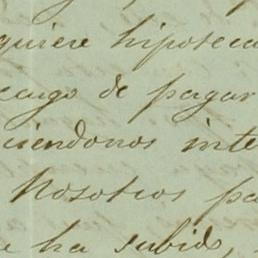 quiere hipoteca
cargo de pagar
ciendonos inte
Nosotros pa
e ha subido,